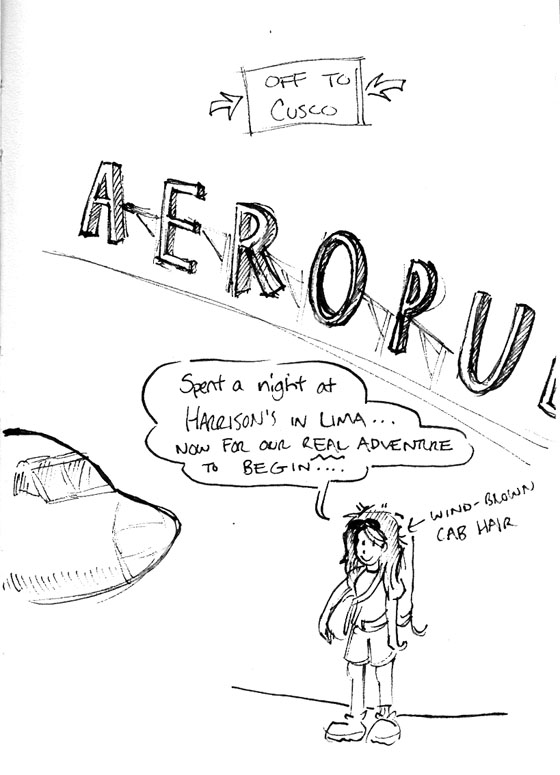 OFF TO
CUSCO
AEROPU
Spent a night at
HARRISON'S IN LIMA...
NOW FOR OUR REAL ADVENTURE
TO BEGIN....
WIND-BROWN
CAB HAIR